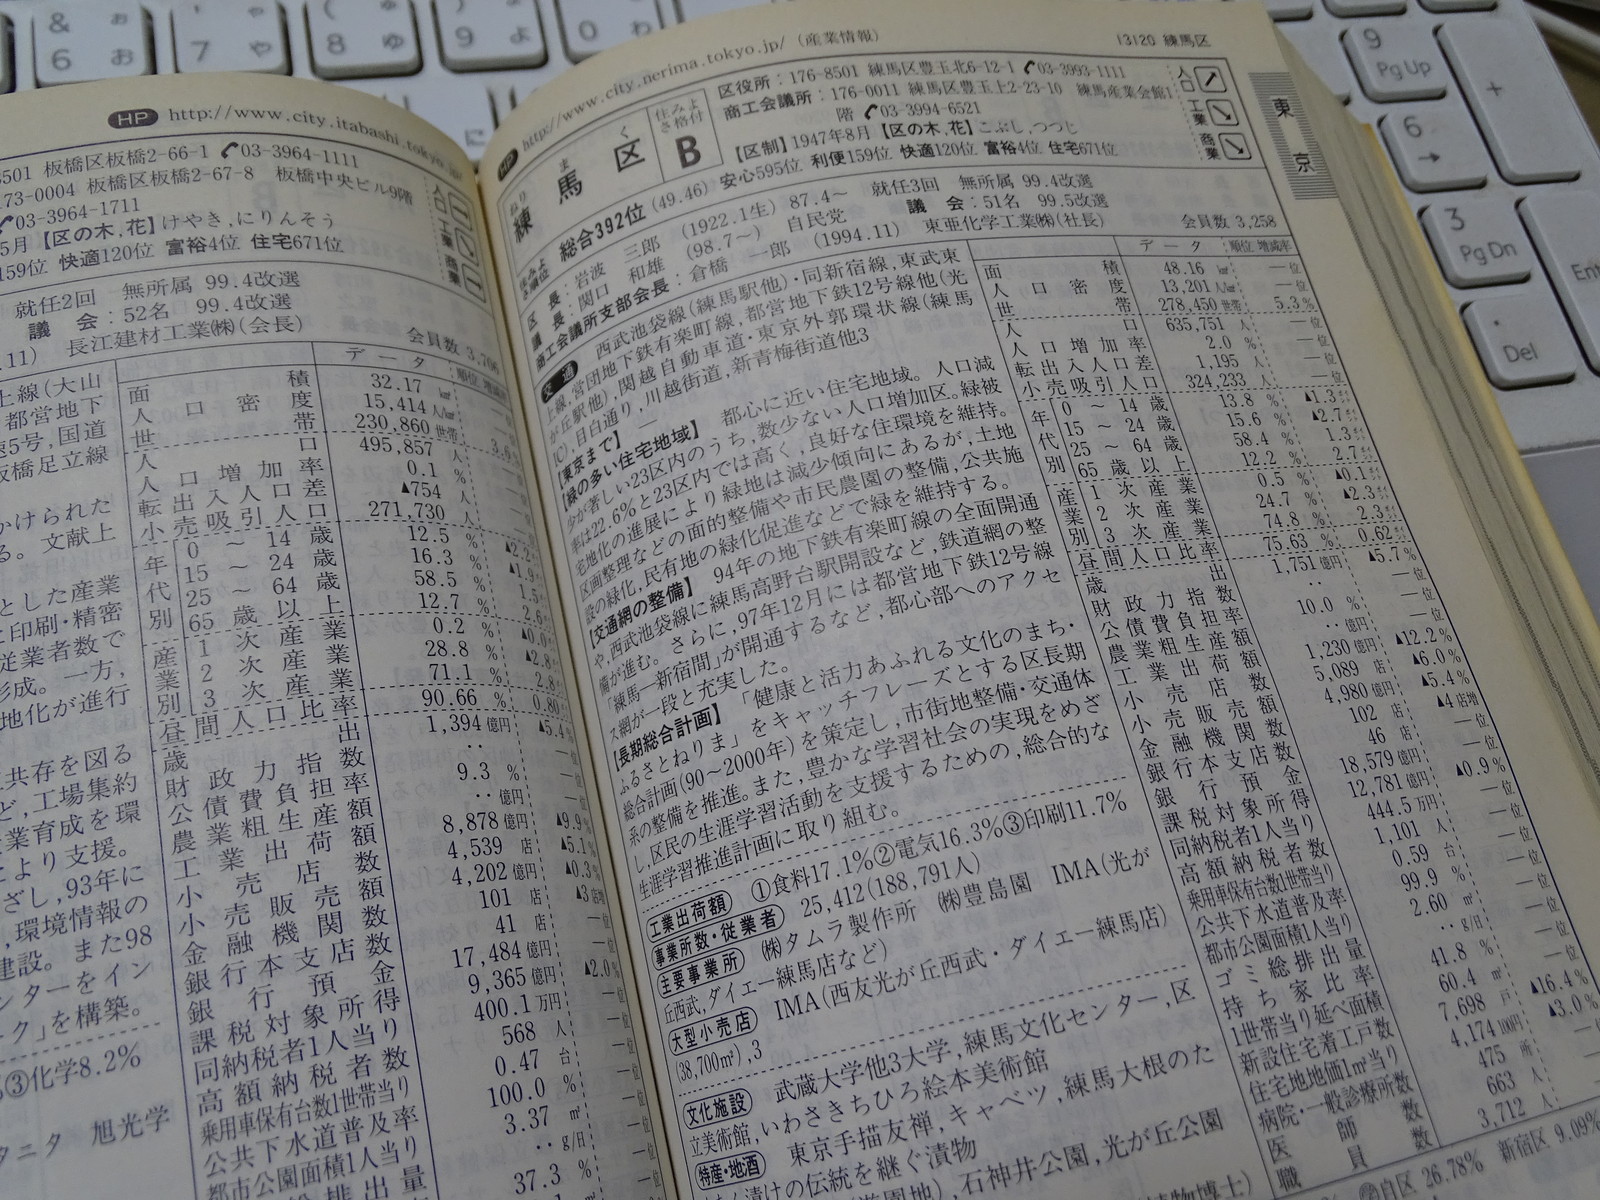 HP http://www.city.itabashi.tokyo.jp/
3501 板橋区板橋2-66-1 03-3964-1111
173-0004 板橋区板橋2-67-8 板橋中央ビル9階
03-3964-1711
5月【区の木,花】けやき,にりんそう
159位 快適120位 富裕4位 住宅671位
人口 工業 商業
就任2回 無所属 99.4改選
議会:52名 99.4改選
.11) 長江建材工業㈱(会長)
会員数 3,706
上線(大山
都営地下
速5号,国道
板橋足立線
かけられた
る。文献上
とした産業
と印刷・精密
従業者数で
形成。一方,
地化が進行
共存を図る
ど,工場集約
業育成を環
により支援。
ざし,93年に
,環境情報の
建設。また98
ンターをイン
ク」を構築。
③化学8.2%
タニタ 旭光学
データ 順位 増減率
面積 32.17 ㎢
人口密度 15,414 人/㎢
世帯 230,860 世帯
人口 495,857 人
人口増加率 0.1 %
転出入人口差 ▲754 人
小売吸引人口 271,730 人
年代別
0～14歳 12.5 %
15～24歳 16.3 %
25～64歳 58.5 %
65歳以上 12.7 %
産業別
1次産業 0.2 %
2次産業 28.8 %
3次産業 71.1 %
昼間人口比率 90.66 %
歳出 1,394 億円 ▲5.4
財政力指数 ‥
公債費負担率 9.3 %
農業粗生産額 ‥ 億円
工業出荷額 8,878 億円 ▲9.9
小売店数 4,539 店 ▲5.1
小売販売額 4,202 億円 ▲0.3
金融機関数 101 店 ▲3
銀行本支店数 41 店
銀行預金 17,484 億円
課税対象所得 9,365 億円 ▲2.0
同納税者1人当り 400.1 万円
高額納税者数 568 人
乗用車保有台数1世帯当り 0.47 台
公共下水道普及率 100.0 %
都市公園面積1人当り 3.37 ㎡
排出量 ‥ g/日
37.3 %
HP http://www.city.nerima.tokyo.jp/(産業情報)
13120 練馬区
東京
ねりまく
練馬区
住みよさ格付
B
区役所:176-8501 練馬区豊玉北6-12-1 03-3993-1111
商工会議所:176-0011 練馬区豊玉上2-23-10 練馬産業会館1
階 03-3994-6521
【区制】1947年8月【区の木,花】こぶし,つつじ
人口 工業 商業
住みよさ順位 総合392位(49.46) 安心595位 利便159位 快適120位 富裕4位 住宅671位
区長:岩波三郎(1922.1生) 87.4～ 就任3回 無所属 99.4改選
議長:関口和雄(98.7～) 自民党 議会:51名 99.5改選
商工会議所支部会長:倉橋一郎(1994.11) 東亜化学工業㈱(社長) 会員数 3,258
交通 西武池袋線(練馬駅他)・同新宿線,東武東
上線,営団地下鉄有楽町線,都営地下鉄12号線他(光
が丘駅他),関越自動車道・東京外郭環状線(練馬
IC),目白通り,川越街道,新青梅街道他3
【東京まで】―
【緑の多い住宅地域】 都心に近い住宅地域。人口減
少が著しい23区内のうち,数少ない人口増加区。緑被
率は22.6%と23区内では高く,良好な住環境を維持。
宅地化の進展により緑地は減少傾向にあるが,土地
区画整理などの面的整備や市民農園の整備,公共施
設の緑化,民有地の緑化促進などで緑を維持する。
【交通網の整備】 94年の地下鉄有楽町線の全面開通
や,西武池袋線に練馬高野台駅開設など,鉄道網の整
備が進む。さらに,97年12月には都営地下鉄12号線
「練馬―新宿間」が開通するなど,都心部へのアクセ
ス網が一段と充実した。
【長期総合計画】 「健康と活力あふれる文化のまち・
ふるさとねりま」をキャッチフレーズとする区長期
総合計画(90～2000年)を策定し,市街地整備・交通体
系の整備を推進。また,豊かな学習社会の実現をめざ
し,区民の生涯学習活動を支援するための,総合的な
生涯学習推進計画に取り組む。
工業出荷額 ①食料17.1%②電気16.3%③印刷11.7%
事業所数・従業者 25,412(188,791人)
主要事業所 ㈱タムラ製作所 ㈱豊島園 IMA(光が
丘西武,ダイエー練馬店など)
大型小売店 IMA(西友光が丘西武・ダイエー練馬店)
(38,700㎡),3
文化施設 武蔵大学他3大学,練馬文化センター,区
立美術館,いわさきちひろ絵本美術館
特産・地酒 東京手描友禅,キャベツ,練馬大根のた
くあん漬けの伝統を継ぐ漬物
遊園地),石神井公園,光が丘公園
植物博士)
データ 順位 増減率
面積 48.16 ㎢ ―位
人口密度 13,201 人/㎢
世帯 278,450 世帯 5.3 %
人口 635,751 人 ―位
人口増加率 2.0 % ―位
転出入人口差 1,195 人 ―位
小売吸引人口 324,233 人 ―位
年代別
0～14歳 13.8 % ▲1.3
15～24歳 15.6 % ▲2.7
25～64歳 58.4 % 1.3
65歳以上 12.2 % 2.7
産業別
1次産業 0.5 % ▲0.1
2次産業 24.7 % ▲2.3
3次産業 74.8 % 2.3
昼間人口比率 75.63 % 0.62
歳出 1,751 億円 ▲5.7 %
財政力指数 ‥ ―位
公債費負担率 10.0 % ―位
農業粗生産額 ‥ 億円 ―位
工業出荷額 1,230 億円 ▲12.2 %
小売店数 5,089 店 ▲6.0 %
小売販売額 4,980 億円 ▲5.4 %
金融機関数 102 店 ▲4 店増
銀行本支店数 46 店 ―位
銀行預金 18,579 億円 ―位
課税対象所得 12,781 億円 ▲0.9 %
同納税者1人当り 444.5 万円 ―位
高額納税者数 1,101 人 ―位
乗用車保有台数1世帯当り 0.59 台 ―位
公共下水道普及率 99.9 % ―位
都市公園面積1人当り 2.60 ㎡ ―位
ゴミ総排出量 ‥ g/日 ―位
持ち家比率 41.8 % ―位
1世帯当り延べ面積 60.4 ㎡ ―位
新設住宅着工戸数 7,698 戸 ▲16.4 %
住宅地地価1㎡当り 4,174 100円 ▲3.0 %
病院・一般診療所数 475 所 ―位
医師数 663 人 ―位
職員数 3,712 人
自区 26.78% 新宿区 9.09%
& 6 ぉ お
' 7 ゃ や
( 8 ゅ ゆ
) 9 ょ よ
0
に
9 PgUp
+
6 →
3 PgDn
. Del
Ente